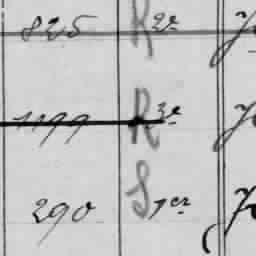 825 R 2e
1199 R 3e
290 S 1er